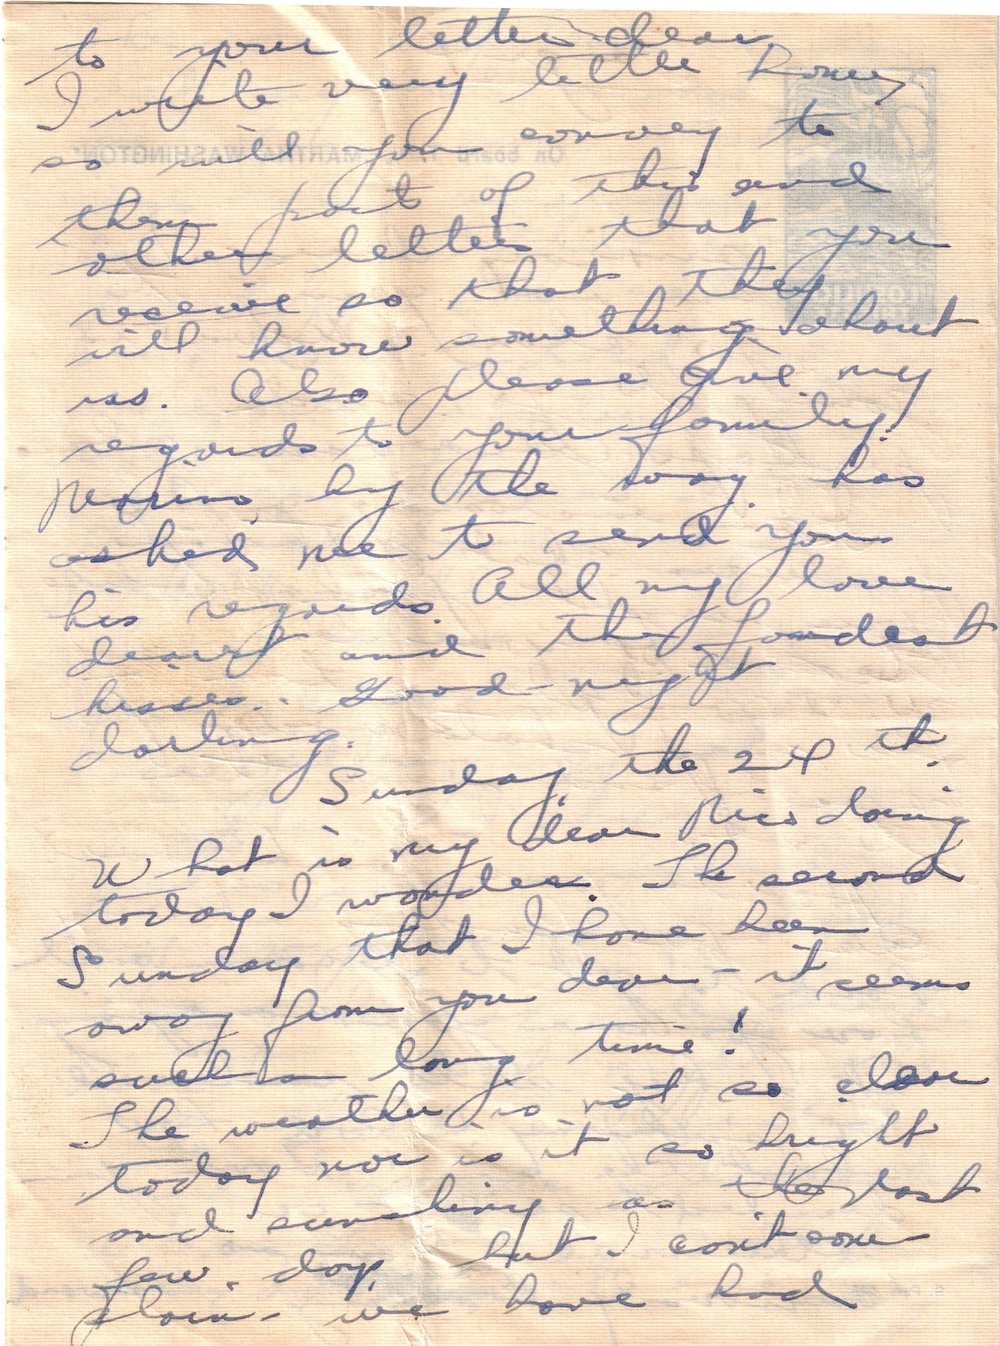 to your letter dear
I write very little home,
so will you convey to
them part of this and
other letters that you
receive so that they
will know something about
us. Also please give my
regards to your family.
by the way, has
asked me to send you
his regards. All my love
dearest and the fondest
kisses.. Good-night
darling.
Sunday, the 24th.
What is my dear doing
today I wonder. The second
Sunday that I have been
away from you dear - it seems
such a long time!
The weather is not so clear
today nor is it so bright
and sunshiny as the last
few days but I can't com
plain - we have had
On board "MARTHA WASHINGTON"